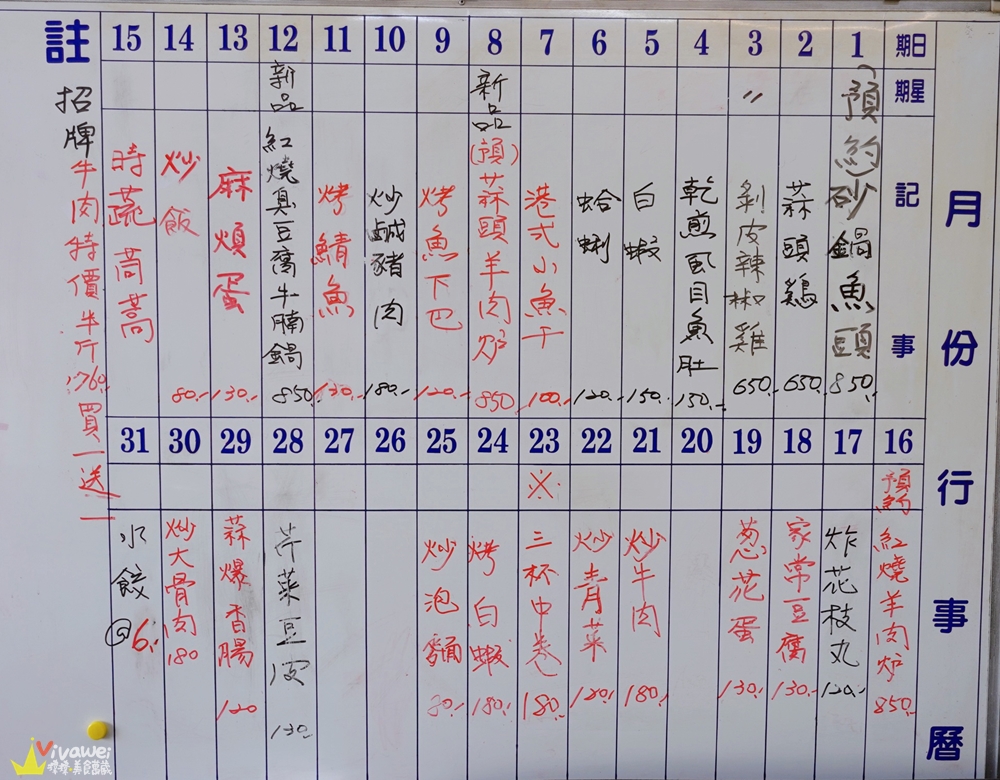 月份行事曆
日期
星期
記事
1
(預約)砂鍋魚頭
850.-
2
蒜頭鷄
650.-
3
〃
剝皮辣椒雞
650.-
4
乾煎虱目魚肚
150.-
5
白蝦
150.-
6
蛤蜊
120.-
7
港式小魚干
100.-
8
新品
(預)蒜頭羊肉炉
850
9
烤魚下巴
120.-
10
炒鹹豬肉
180.-
11
烤鯖魚
130.-
12
新品
紅燒臭豆腐牛腩鍋
850.-
13
麻煩蛋
130.-
14
炒飯
80.-
15
時蔬茼蒿
註
招牌牛肉特價半斤
買一送一
16
預約
紅燒羊肉炉
850.-
17
炸花枝丸
120.-
18
家常豆腐
130.-
19
葱花蛋
130.-
20
21
炒牛肉
180.-
22
炒青菜
120.-
23
※
三杯中卷
180.-
24
烤白蝦
180.-
25
炒泡麵
80.-
26
27
28
芹菜豆皮
130.-
29
蒜爆香腸
120
30
炒大骨肉
180
31
水餃
@6.-
Vivawei